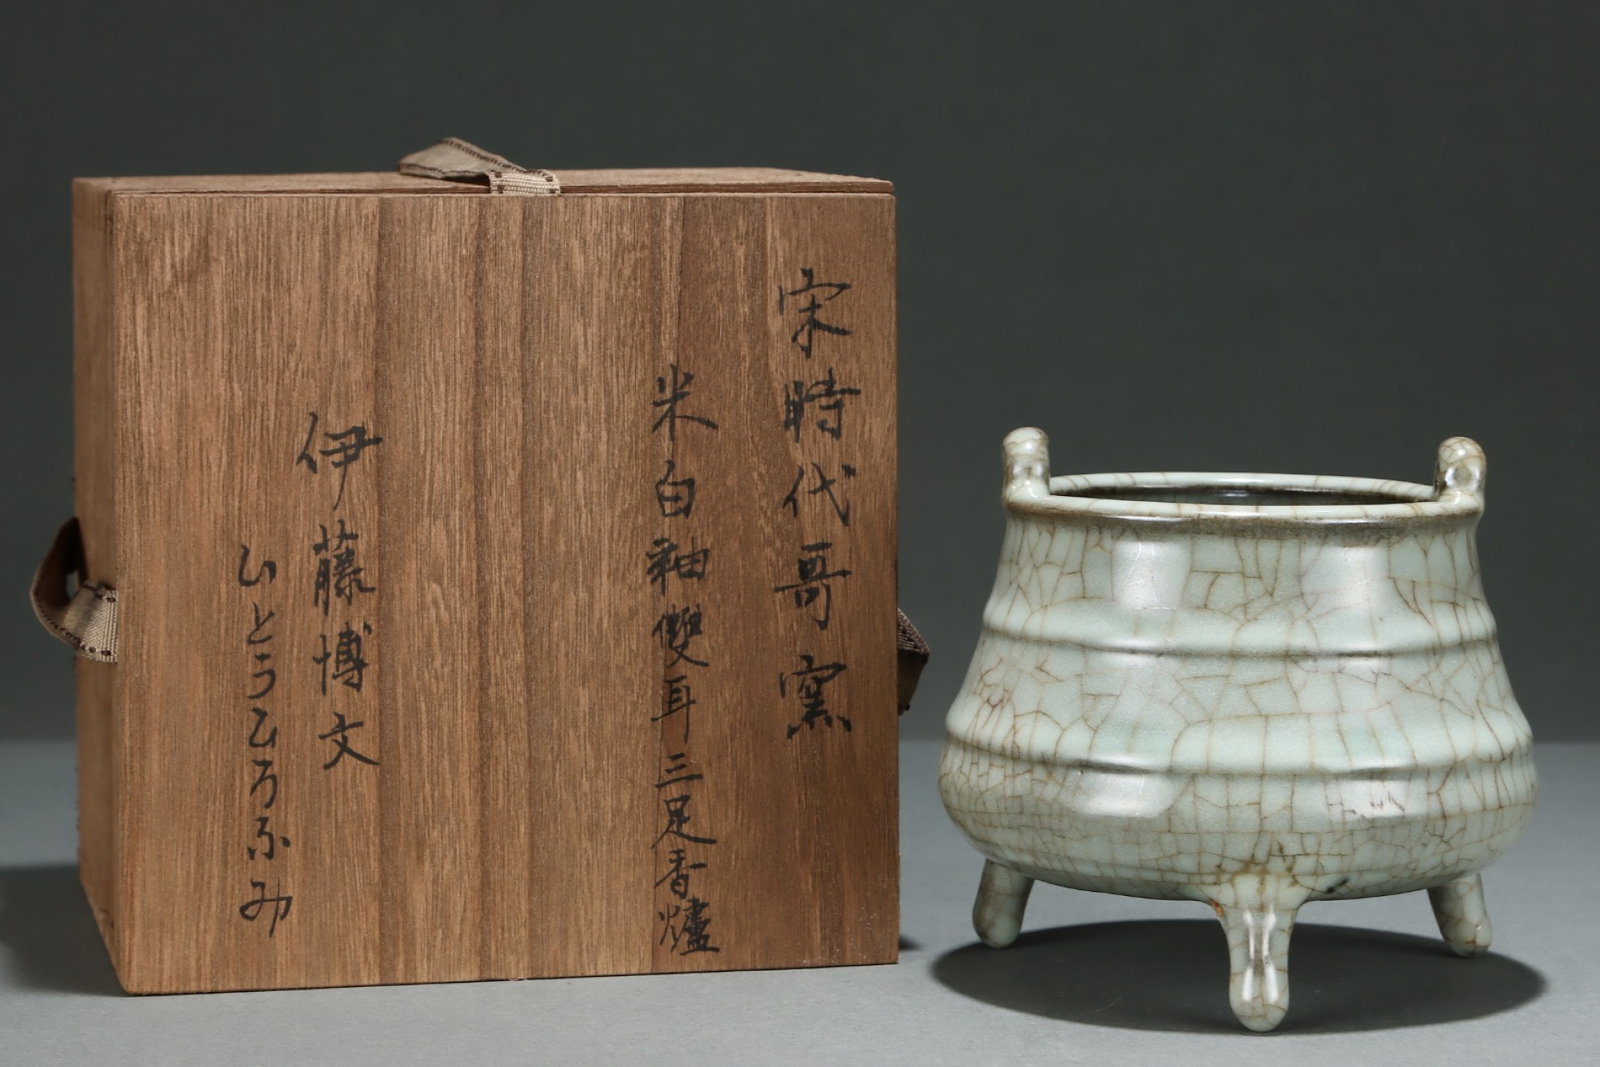 宋時代哥窯
米白袖雙耳三足香爐
伊藤博文
ひとうひろふみ